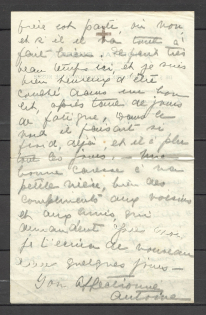 frère est parti, ou non
et s'il et va à
faut bien. Il fait très
beau temps ici et je suis
bien heureux d'être
couché dans une bon
lit, après tant de jours
de fatigue, dans le
nord il faisait si
froid, déjà; et il a plu
tous les jours. Une
bonne caresse à ma
petite nièce, bien des
compliments aux voisins
et aux amis, qui
demandent pour moi
Je t'écrirai de nouveau
dans quelques jours -
Ton affectionné
Antoine